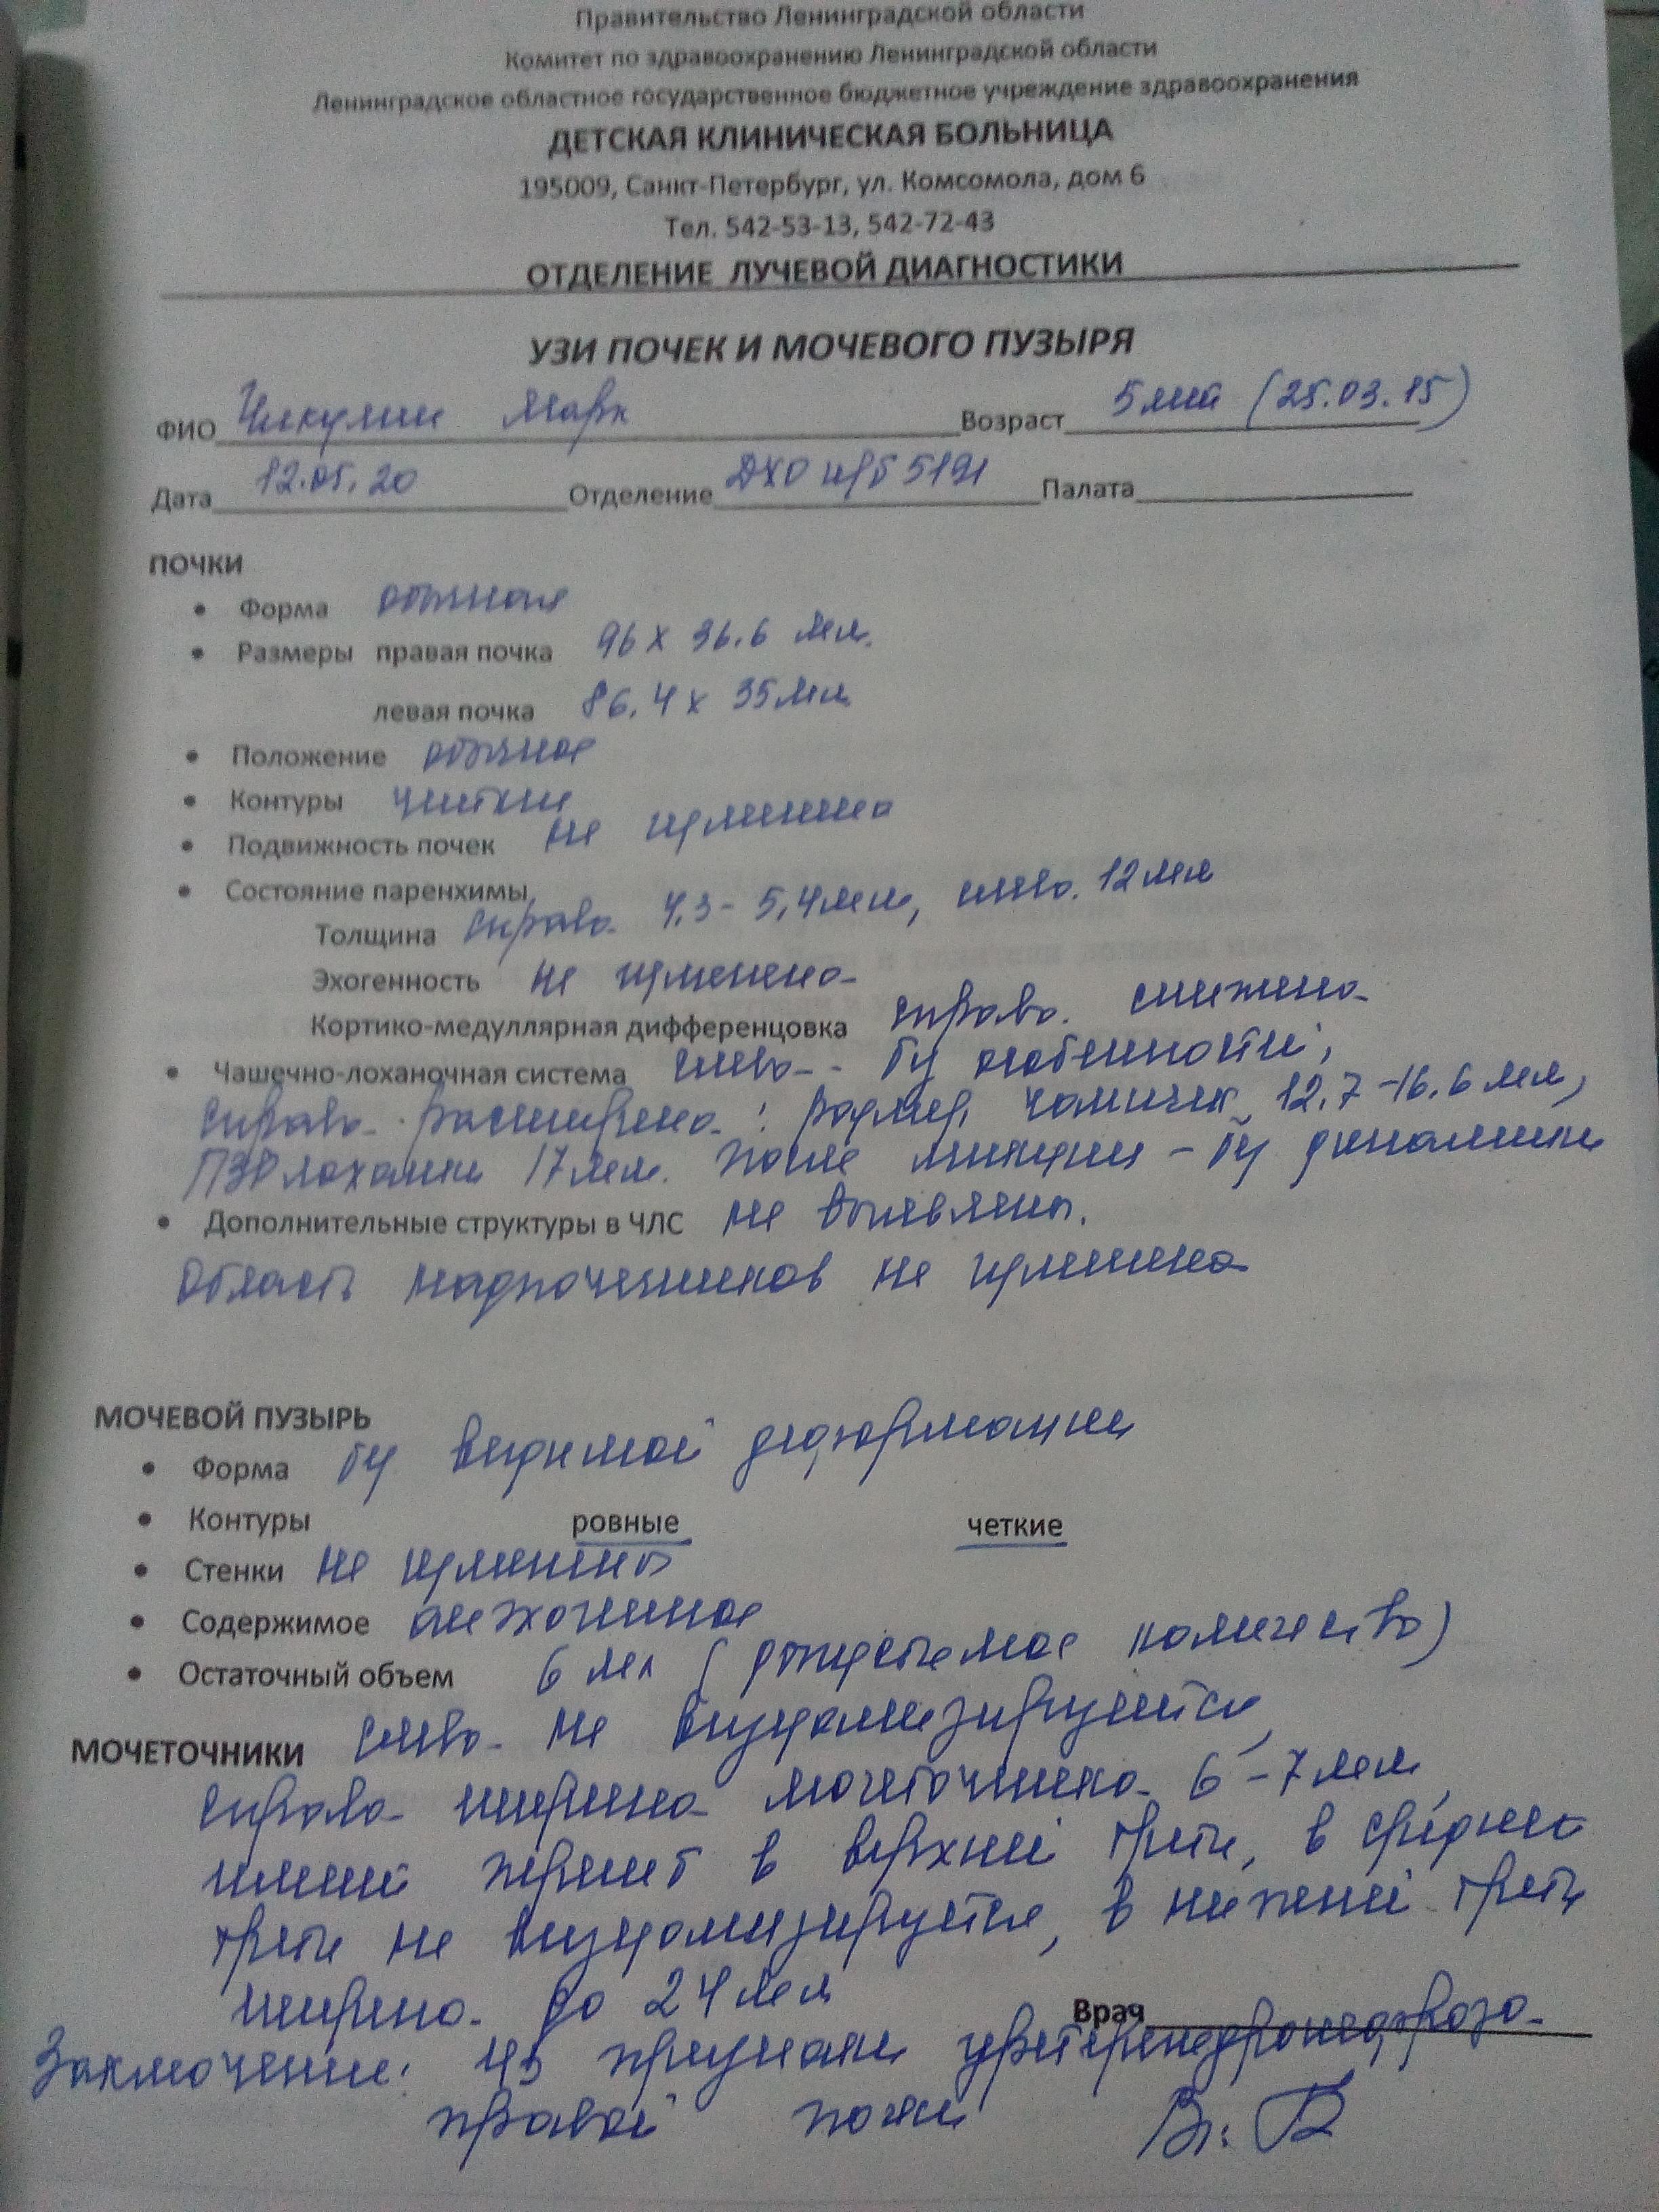 Правительство Ленинградской области
Комитет по здравоохранению Ленинградской области
Ленинградское областное государственное бюджетное учреждение здравоохранения
ДЕТСКАЯ КЛИНИЧЕСКАЯ БОЛЬНИЦА
195009, Санкт-Петербург, ул. Комсомола, дом 6
Тел. 542-53-13, 542-72-43
ОТДЕЛЕНИЕ ЛУЧЕВОЙ ДИАГНОСТИКИ
УЗИ ПОЧЕК И МОЧЕВОГО ПУЗЫРЯ
ФИО Чикулин Марк Возраст 5 лет (25.03.15)
Дата 12.05.20 Отделение ДХО и/б 5191 Палата
ПОЧКИ
• Форма обычная
• Размеры правая почка 96 х 36.6 мм.
левая почка 86.4 х 35 мм
• Положение обычное
• Контуры четкие
• Подвижность почек не изменена
• Состояние паренхимы
Толщина справа 4,3 - 5,4 мм, слева 12 мм
Эхогенность не изменена
Кортико-медуллярная дифференцовка справа снижена
• Чашечно-лоханочная система слева - без особенностей,
справа расширена: размер чашечек 12.7 - 16.6 мм,
ПЗР лоханки 17 мм. После микции - без динамики
• Дополнительные структуры в ЧЛС не выявлены.
Область надпочечников не изменена
МОЧЕВОЙ ПУЗЫРЬ
• Форма без видимой деформации
• Контуры ровные четкие
• Стенки не изменены
• Содержимое анэхогенное
• Остаточный объем 6 мл (допустимое количество)
МОЧЕТОЧНИКИ слева не визуализируется,
справа ширина мочеточника 6 - 7 мм
в верхней трети, в средней
трети не визуализируется, в нижней трети
ширина до 24 мм
Врач
Заключение: УЗ признаки уретерогидронефроза
правой почки